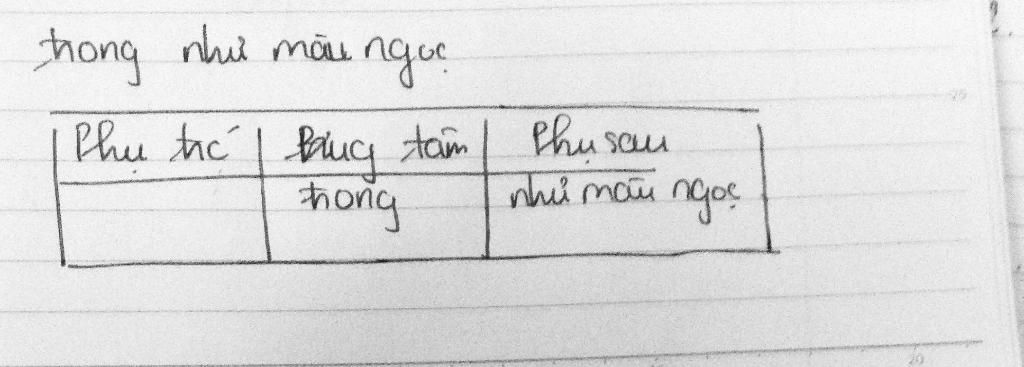 trong như màu ngọc
Phụ trc Trung tâm Phụ sau
trong như màu ngọc
20